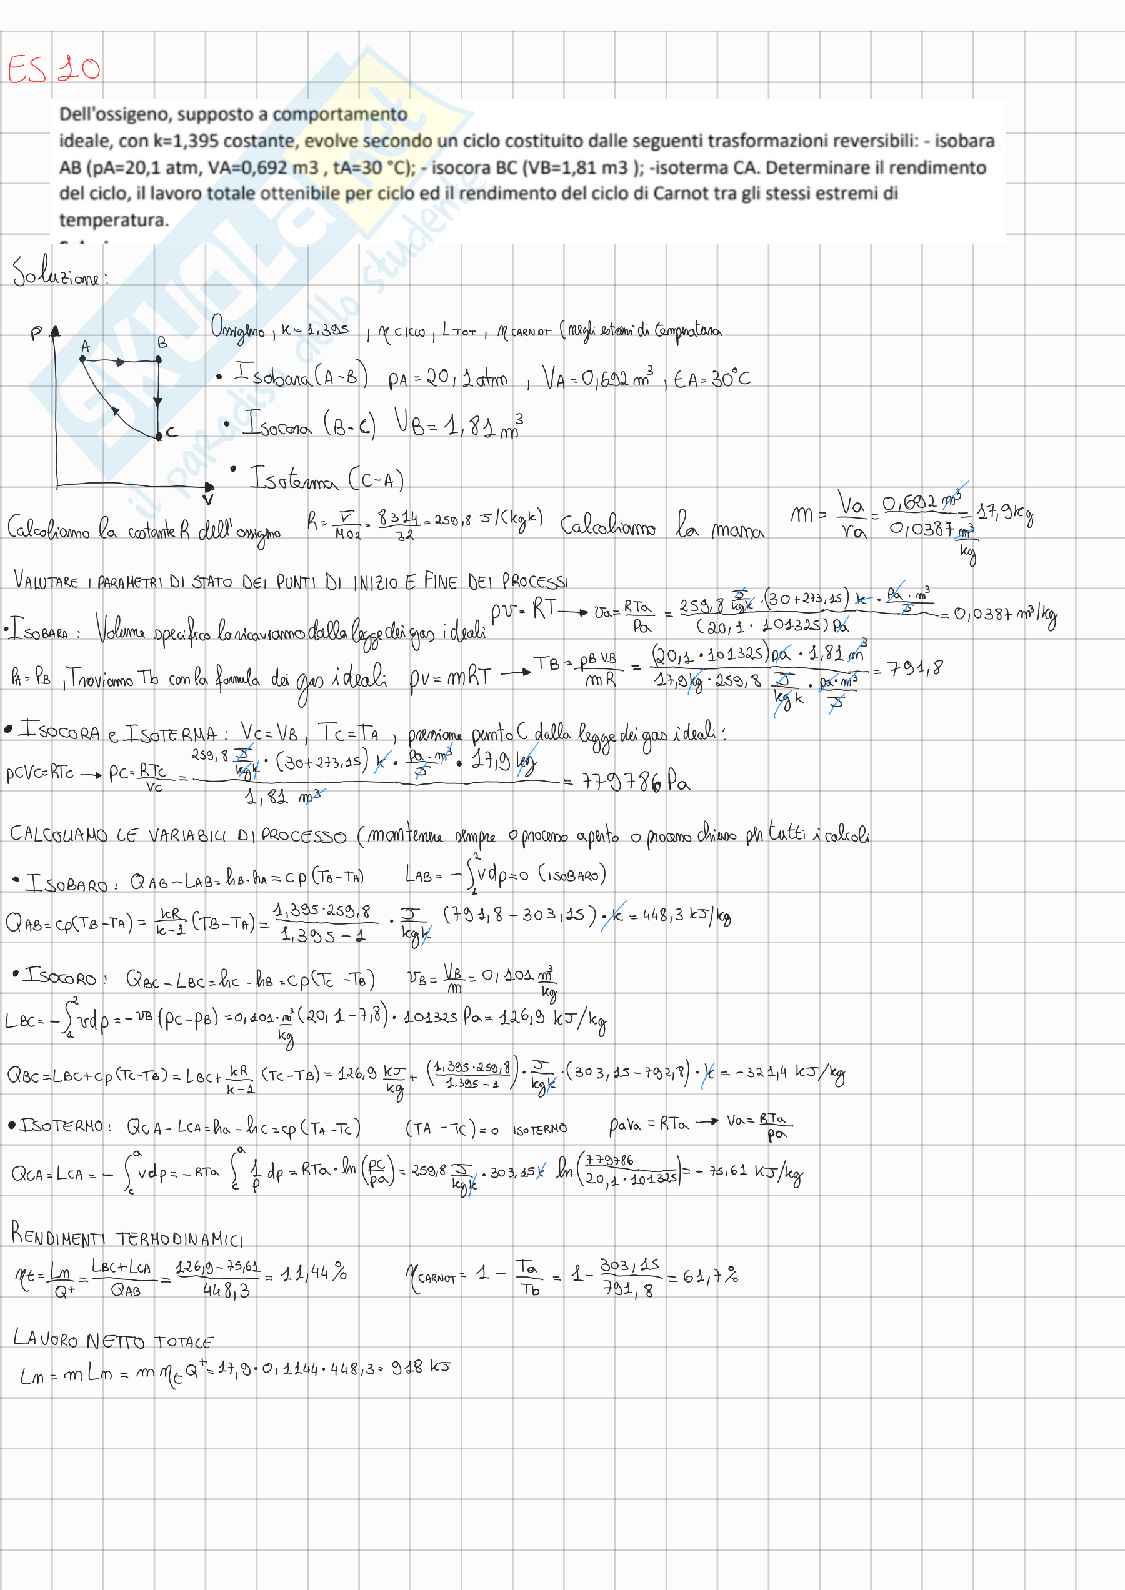 ES 10
Dell'ossigeno, supposto a comportamento
ideale, con k=1,395 costante, evolve secondo un ciclo costituito dalle seguenti trasformazioni reversibili: - isobara
AB (pA=20,1 atm, VA=0,692 m3 , tA=30 °C); - isocora BC (VB=1,81 m3 ); -isoterma CA. Determinare il rendimento
del ciclo, il lavoro totale ottenibile per ciclo ed il rendimento del ciclo di Carnot tra gli stessi estremi di
temperatura.
Soluzione:
P A B C V
Ossigeno, k=1,395, η CICLO, LTOT, ηCARNOT (negli estremi di temperatura
• Isobara (A-B) pA=20,1 atm, VA=0,692 m³, tA=30°C
• Isocora (B-C) VB=1,81 m³
• Isoterma (C-A)
Calcoliamo la costante R dell'ossigeno R=r̅/MO2=8314/32=259,8 J/(kgk) Calcoliamo la massa m=Va/va=0,692 m³/0,0387 m³/kg=17,9kg
VALUTARE I PARAMETRI DI STATO DEI PUNTI DI INIZIO E FINE DEI PROCESSI
• ISOBARO: Volume specifico lo ricaviamo dalla legge dei gas ideali pv=RT → va=RTa/Pa=259,8 J/kgk·(30+273,15)k·Pa·m³/J/(20,1·101325)Pa=0,0387 m³/kg
PA=PB, Troviamo Tb con la formula dei gas ideali pv=mRT → TB=pB VB/mR=(20,1·101325)pa·1,81 m³/17,9kg·259,8 J/kgk·pa·m³/J=791,8
• ISOCORA e ISOTERMA: VC=VB, TC=TA, pressione punto C dalla legge dei gas ideali:
pCVC=RTC → PC=RTC/VC=259,8 J/kgk·(30+273,15)k·Pa·m³/J·17,9kg/1,81 m³=779786 Pa
CALCOLIAMO LE VARIABILI DI PROCESSO (mantenere sempre o processo aperto o processo chiuso per tutti i calcoli
• ISOBARO: QAB-LAB=hB-hA=cp(TB-TA) LAB=-∫₁²vdp=0 (ISOBARO)
QAB=cp(TB-TA)=kR/k-1(TB-TA)=1,395·259,8/1,395-1·J/kgk(791,8-303,15)·k=448,3 kJ/kg
• ISOCORO: QBC-LBC=hC-hB=cp(TC-TB) vB=VB/m=0,101 m³/kg
LBC=-∫₁²vdp=-vB(pC-pB)=0,101·m³/kg(20,1-7,8)·101325 Pa=126,9 kJ/kg
QBC=LBC+cp(TC-TB)=LBC+kR/k-1(TC-TB)=126,9 kJ/kg+(1,395·259,8/1.395-1)·J/kgk·(303,15-792,8)·k=-321,4 kJ/kg
• ISOTERMO: QCA-LCA=ha-hC=cp(TA-TC) (TA-TC)=0 ISOTERMO paVa=RTa → Va=RTa/pa
QCA=LCA=-∫cᵃvdp=-RTa∫cᵃ1/p dp=RTa·ln(pC/pa)=259,8 J/kgk·303,15k ln(779786/20,1·101325)=-75,61 KJ/kg
RENDIMENTI TERMODINAMICI
ηt=Ln/Q+=LBC+LCA/QAB=126,9-75,61/448,3=11,44% ηCARNOT=1-Ta/Tb=1-303,15/791,8=61,7%
LAVORO NETTO TOTALE
Ln=mLn=mηtQ+=17,9·0,1144·448,3=918 kJ
SKUOLA.net
il paradiso dello studente